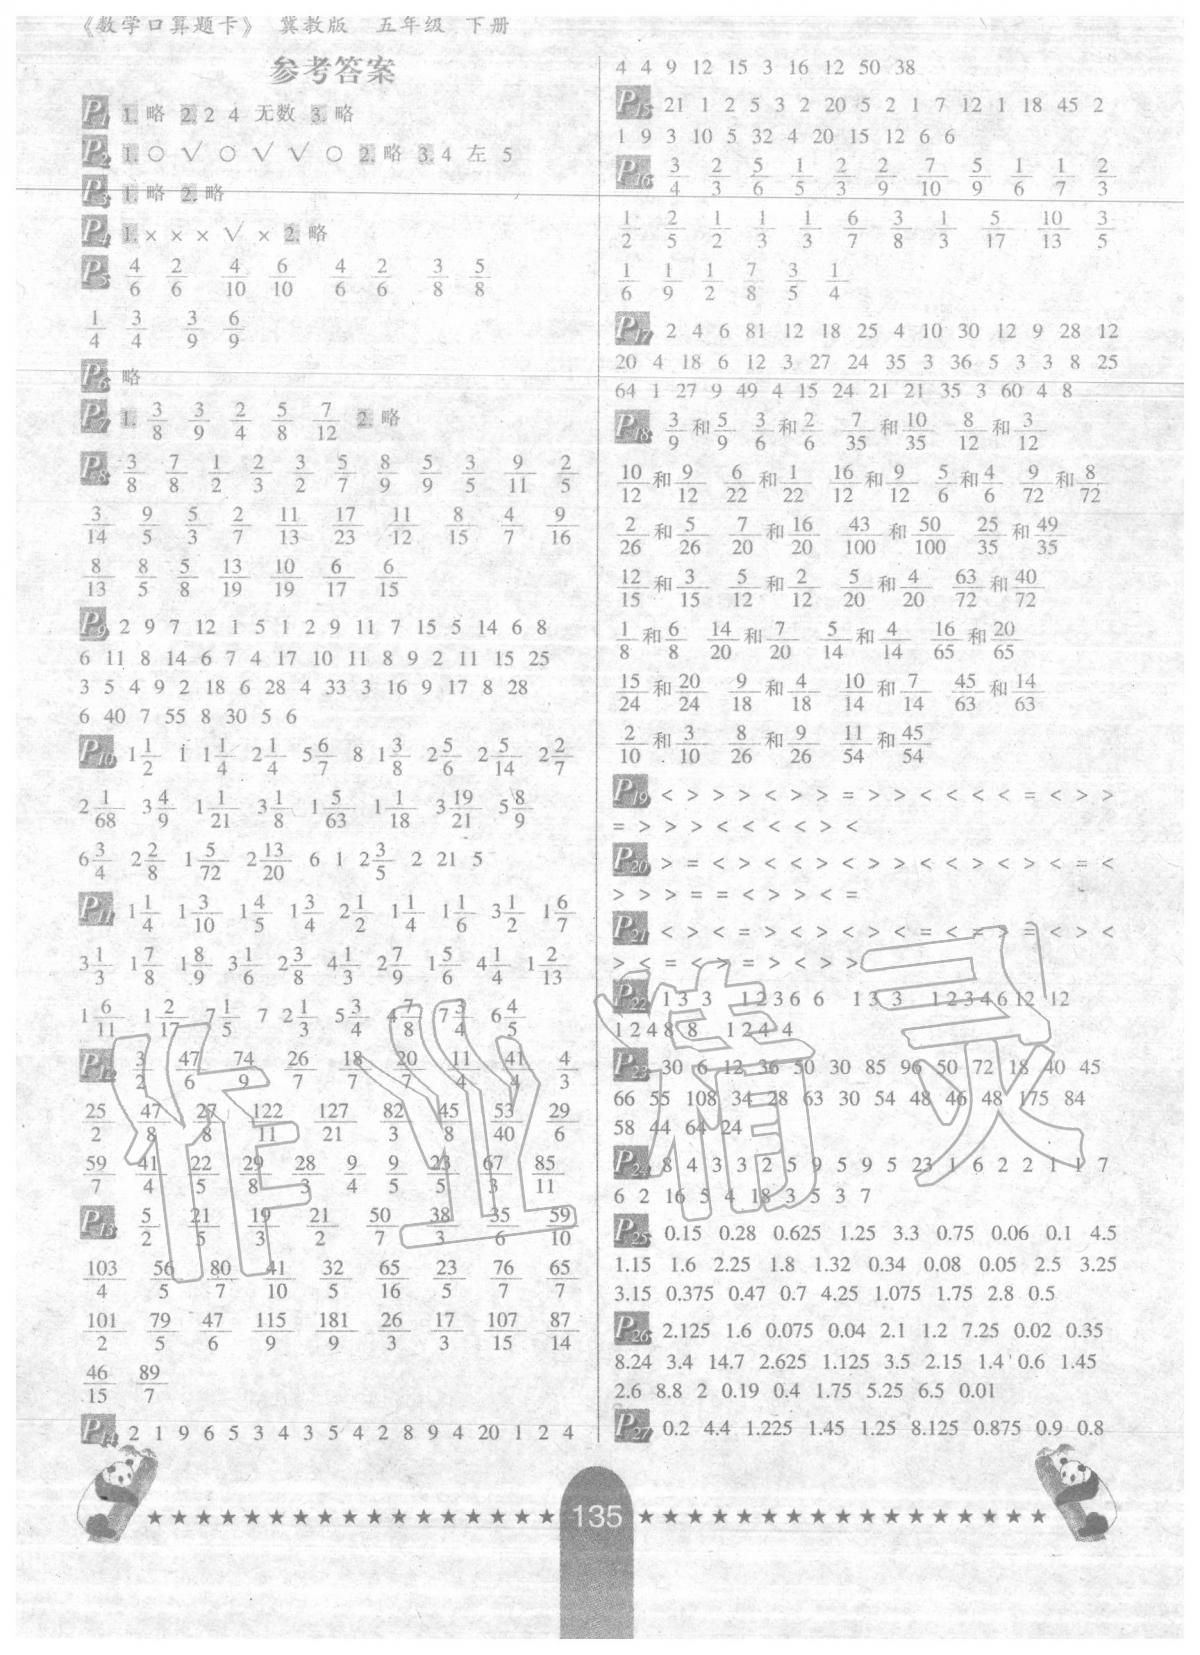 《数学口算题卡》 冀教版 五年级 下册
参考答案
P1 1. 略 2. 2 4 无数 3. 略
P2 1. ○ √ ○ √ √ ○ 2. 略 3. 4 左 5
P3 1. 略 2. 略
P4 1. × × × √ × 2. 略
P5 4/6 2/6 4/10 6/10 4/6 2/6 3/8 5/8
1/4 3/4 3/9 6/9
P6 略
P7 1. 3/8 3/9 2/4 5/8 7/12 2. 略
P8 3/8 7/8 1/2 2/3 3/2 5/7 8/9 5/9 3/5 9/11 2/5
3/14 9/5 5/3 2/7 11/13 17/23 11/12 8/15 4/7 9/16
8/13 8/5 5/8 13/19 10/19 6/17 6/15
P9 2 9 7 12 1 5 1 2 9 11 7 15 5 14 6 8
6 11 8 14 6 7 4 17 10 11 8 9 2 11 15 25
3 5 4 9 2 18 6 28 4 33 3 16 9 17 8 28
6 40 7 55 8 30 5 6
P10 1 1/2 1 1 1/4 2 1/4 5 6/7 8 1 3/8 2 5/6 2 5/14 2 2/7
2 1/68 3 4/9 1 1/21 3 1/8 1 5/63 1 1/18 3 19/21 5 8/9
6 3/4 2 2/8 1 5/72 2 13/20 6 1 2 3/5 2 21 5
P11 1 1/4 1 3/10 1 4/5 1 3/4 2 1/2 1 1/4 1 1/6 3 1/2 1 6/7
3 1/3 1 7/8 1 8/9 3 1/6 2 3/8 4 1/3 2 7/9 1 5/6 4 1/4 1 2/13
1 6/11 1 2/17 7 1/5 7 2 1/3 5 3/4 4 7/8 7 3/4 6 4/5
P12 3/2 47/6 74/9 26/7 18/7 20/7 11/4 41/4 4/3
25/2 47/8 27/8 122/11 127/21 82/3 45/8 53/40 29/6
59/7 41/4 22/5 29/8 28/3 9/4 9/5 23/5 67/3 85/11
P13 5/2 21/5 19/3 21/2 50/7 38/3 35/6 59/10
103/4 56/5 80/7 41/10 32/5 65/16 23/5 76/7 65/7
101/2 79/5 47/6 115/9 181/9 26/3 17/3 107/15 87/14
46/15 89/7
P14 2 1 9 6 5 3 4 3 5 4 2 8 9 4 20 1 2 4
4 4 9 12 15 3 16 12 50 38
P15 21 1 2 5 3 2 20 5 2 1 7 12 1 18 45 2
1 9 3 10 5 32 4 20 15 12 6 6
P16 3/4 2/3 5/6 1/5 2/3 2/9 7/10 5/9 1/6 1/7 2/3
1/2 2/5 1/2 1/3 1/3 6/7 3/8 1/3 5/17 10/13 3/5
1/6 1/9 1/2 7/8 3/5 1/4
P17 2 4 6 81 12 18 25 4 10 30 12 9 28 12
20 4 18 6 12 3 27 24 35 3 36 5 3 3 8 25
64 1 27 9 49 4 15 24 21 21 35 3 60 4 8
P18 3/9和5/9 3/6和2/6 7/35和10/35 8/12和3/12
10/12和9/12 6/22和1/22 16/12和9/12 5/6和4/6 9/72和8/72
2/26和5/26 7/20和16/20 43/100和50/100 25/35和49/35
12/15和3/15 5/12和2/12 5/20和4/20 63/72和40/72
1/8和6/8 14/20和7/20 5/14和4/14 16/65和20/65
15/24和20/24 9/18和4/18 10/14和7/14 45/63和14/63
2/10和3/10 8/26和9/26 11/54和45/54
P19 < > > > < > > = > > < < < < = < > >
= > > > < < < < > <
P20 > = < > < > < < > > < < > < > < = <
> > > = = < > > < =
P21 < > < = > < > < > < = < = > = < > <
> < = < > = > < > >
P22 1 3 3 1 2 3 6 6 1 3 3 1 2 3 4 6 12 12
1 2 4 8 8 1 2 4 4
P23 30 6 12 36 50 30 85 96 50 72 18 40 45
66 55 108 34 28 63 30 54 48 46 48 175 84
58 44 64 24
P24 8 4 3 3 2 5 9 5 9 5 23 1 6 2 2 1 1 7
6 2 16 5 4 18 3 5 3 7
P25 0.15 0.28 0.625 1.25 3.3 0.75 0.06 0.1 4.5
1.15 1.6 2.25 1.8 1.32 0.34 0.08 0.05 2.5 3.25
3.15 0.375 0.47 0.7 4.25 1.075 1.75 2.8 0.5
P26 2.125 1.6 0.075 0.04 2.1 1.2 7.25 0.02 0.35
8.24 3.4 14.7 2.625 1.125 3.5 2.15 1.4 0.6 1.45
2.6 8.8 2 0.19 0.4 1.75 5.25 6.5 0.01
P27 0.2 4.4 1.225 1.45 1.25 8.125 0.875 0.9 0.8
135
作业精灵